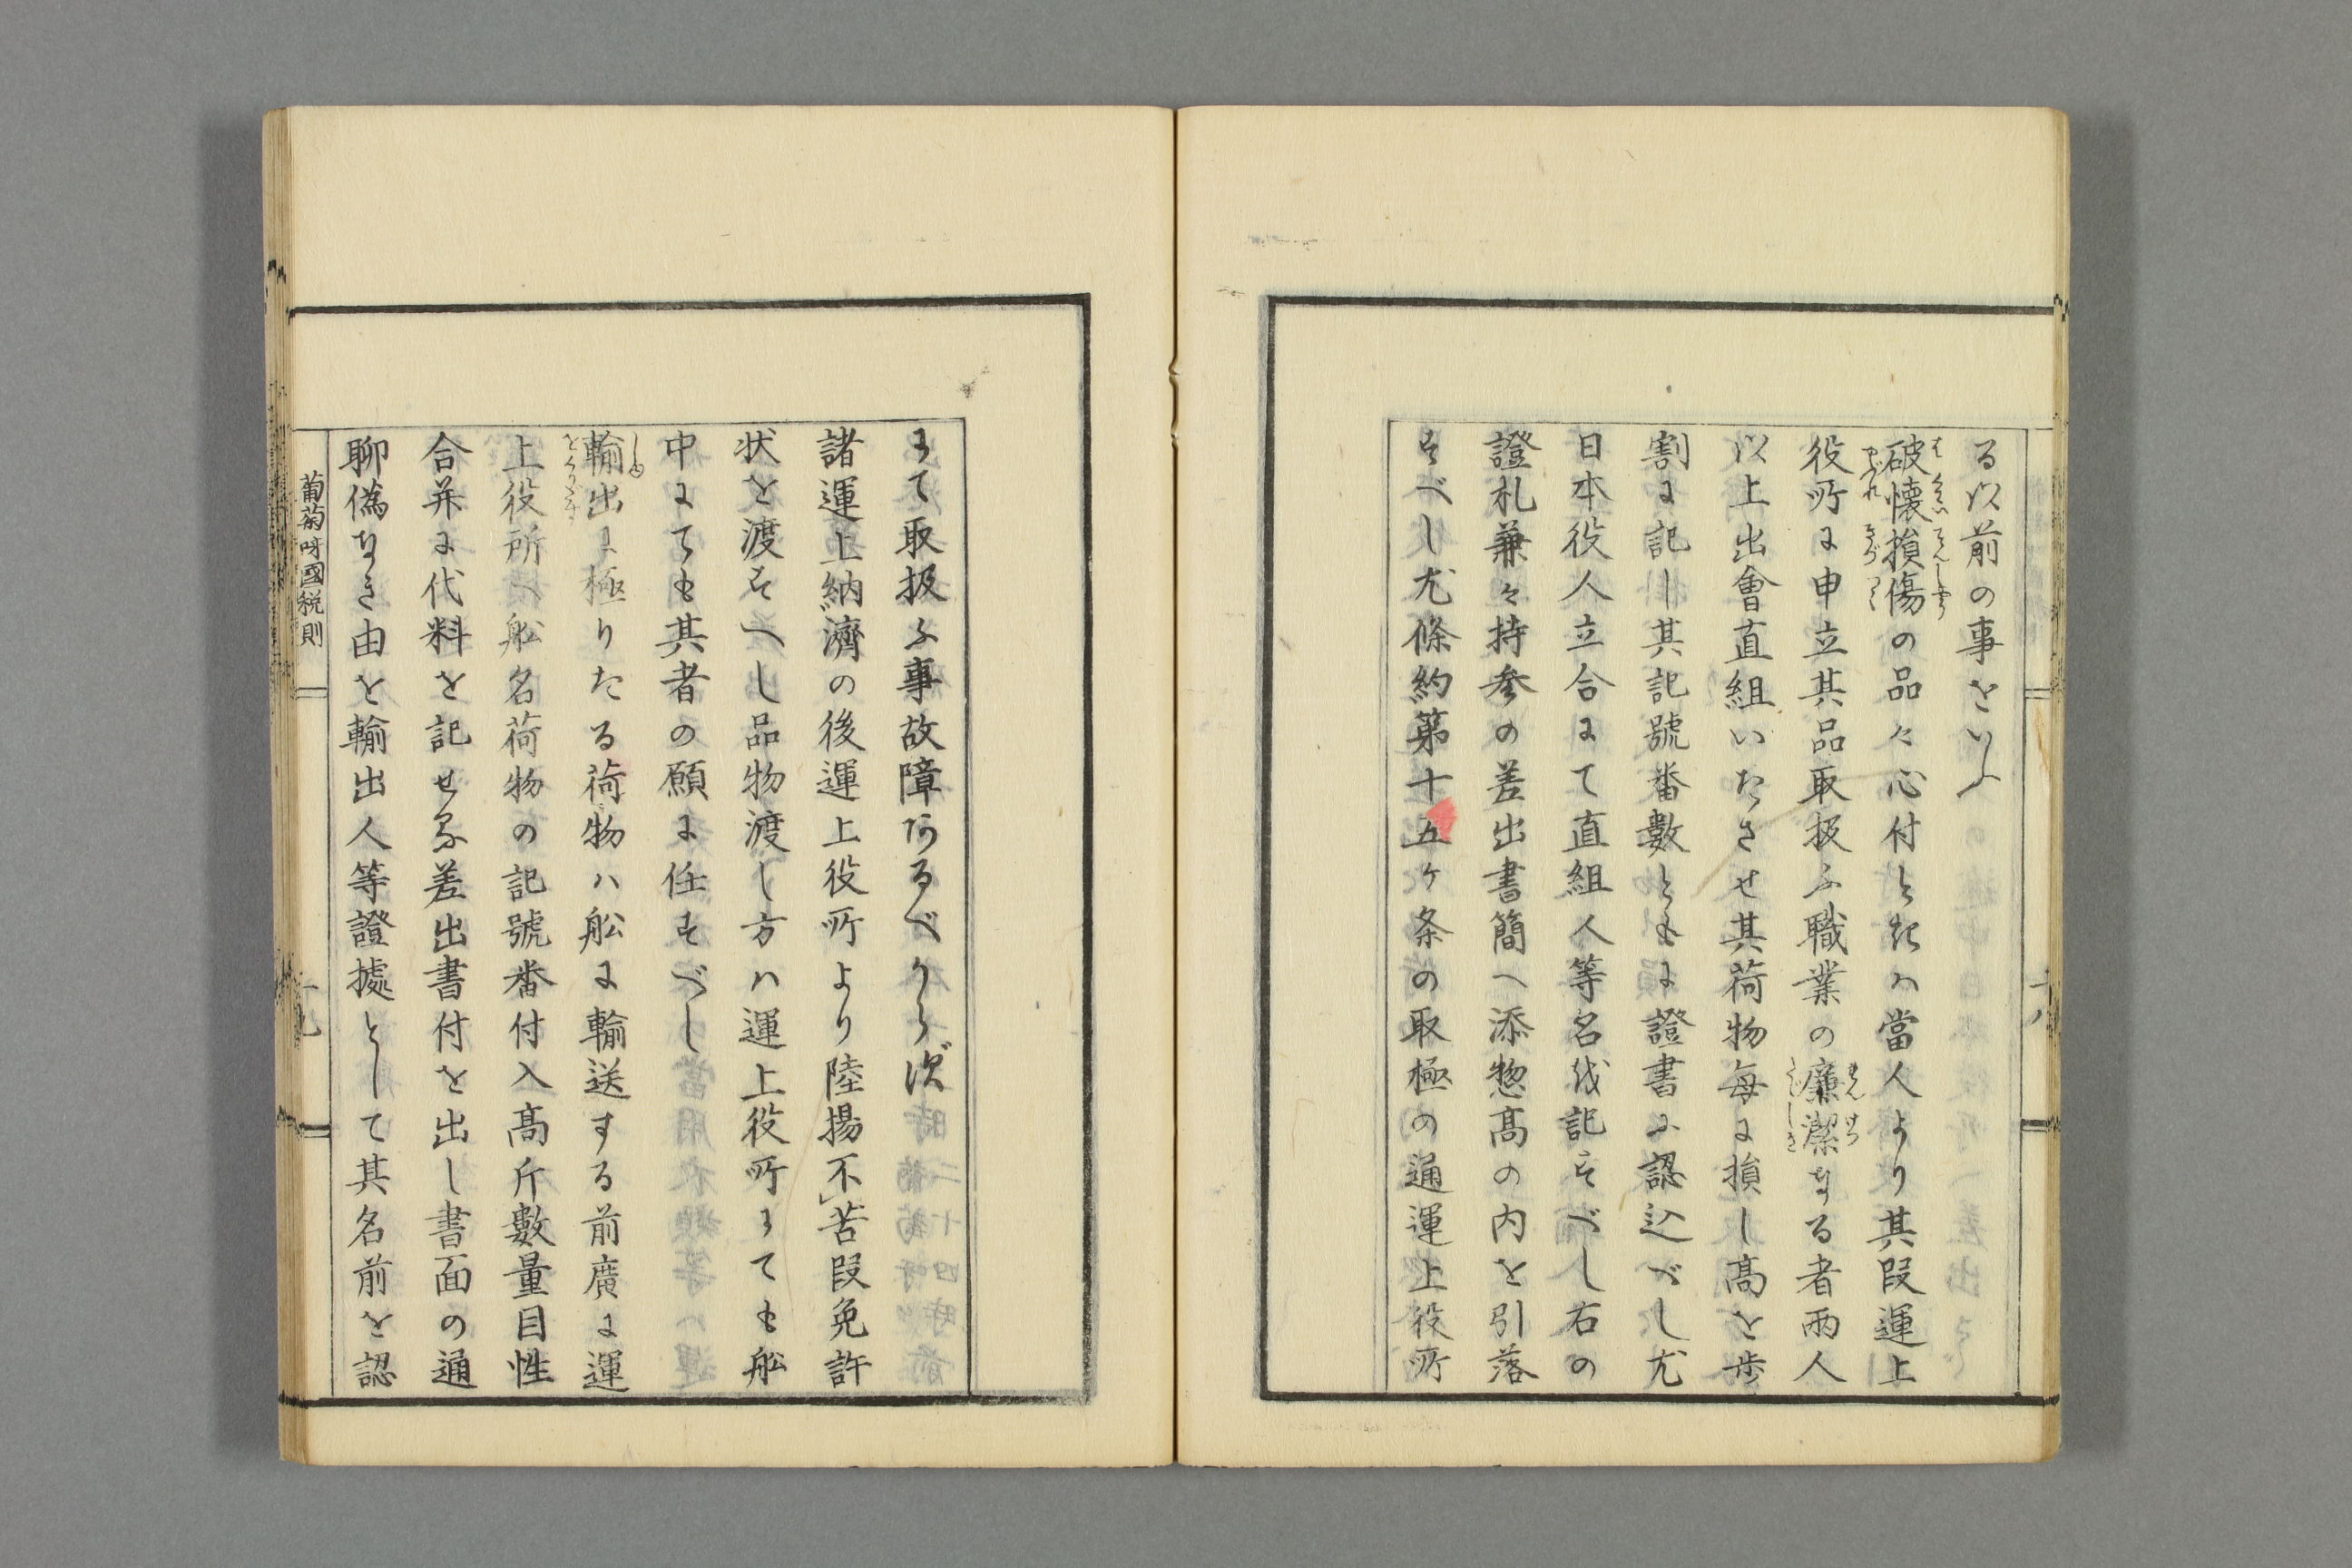 る以前の事をいふ
破懐損傷の品々心付ときハ當人より其段運上
役所に申立其品取扱ふ職業の廉潔なる者両人
以上出會直組いたさせ其荷物毎に損し髙を歩
割に記し其記號番數ともに證書に認込べし尤
日本役人立合にて直組人等名を記すべし右の
證札兼々持参の差出書簡へ添惣髙の内を引落
すべし尤條約第十五ヶ条の取極の通運上役所
にて取扱ふ事故障あるべからず
諸運上納濟の後運上役所より陸揚不苦段免許
状を渡すへし品物渡し方ハ運上役所にても舩
中にても其者の願に任すべし
輸出に極りたる荷物ハ舩に輸送する前廣に運
上役所へ舩名荷物の記號番付入髙斤數量目性
合并に代料を記せる差出書付を出し書面の通
聊偽なき由を輸出人等證據として其名前を認
葡萄呀國税則
十九